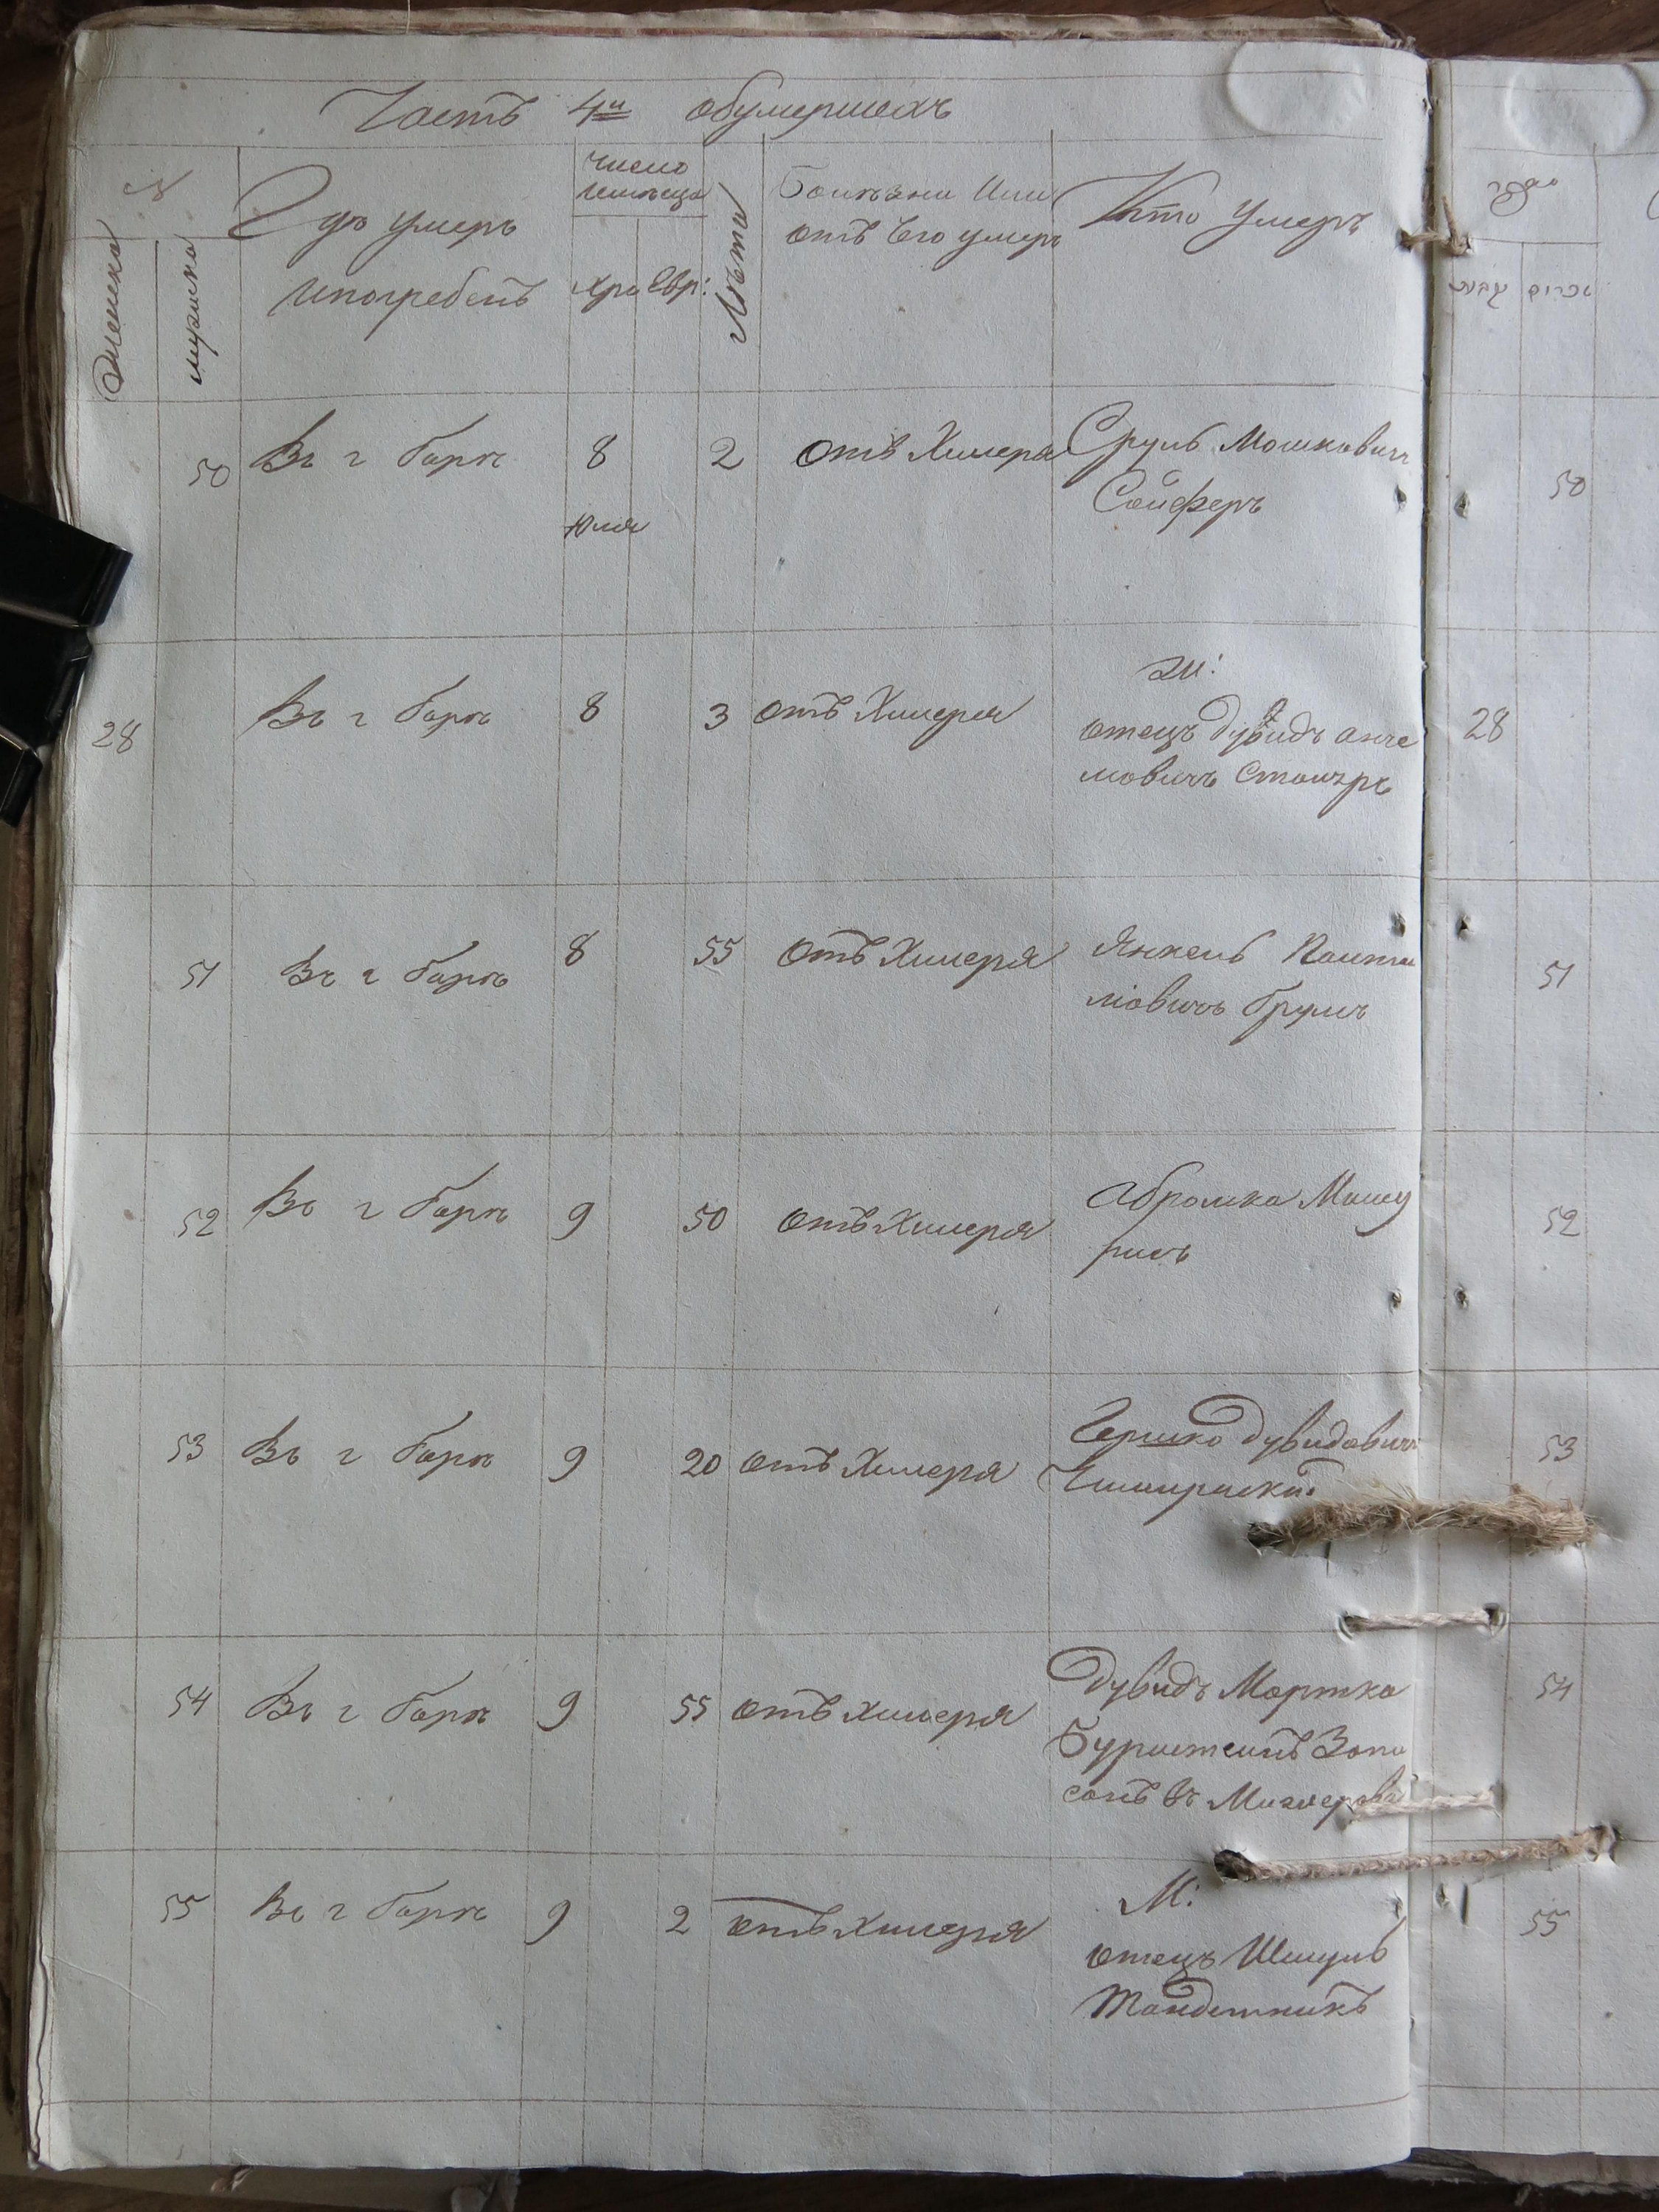 Часть 4и обумершихъ
№
женска
мужска
Где умеръ
ипогребенъ
число
имесяца
хри Евр:
Лѣта
Болѣзни Или
отъ Чего умеръ
Кто Умеръ
50 Въ г Барѣ 8 2 отъ Хилеря Сруль Мошковичъ
Июля Сойферъ
50
28 Въ г Барѣ 8 3 отъ Хилеря Ж:
отецъ Дувидъ анче
мовичъ Столяръ
28
51 Въ г Барѣ 8 55 отъ Хилеря Янкель
мовичъ
51
52 Въ г Барѣ 9 50 отъ Хилеря Абрамка
52
53 Въ г Барѣ 9 20 отъ Хилеря Гершко Дувидовичъ
53
54 Въ г Барѣ 9 55 отъ Хилеря Дувидъ Мортко
Бурштейнъ Запи
санъ въ
54
55 Въ г Барѣ 9 2 отъ Хилеря М:
отецъ Шмуль
Тандетникъ
55